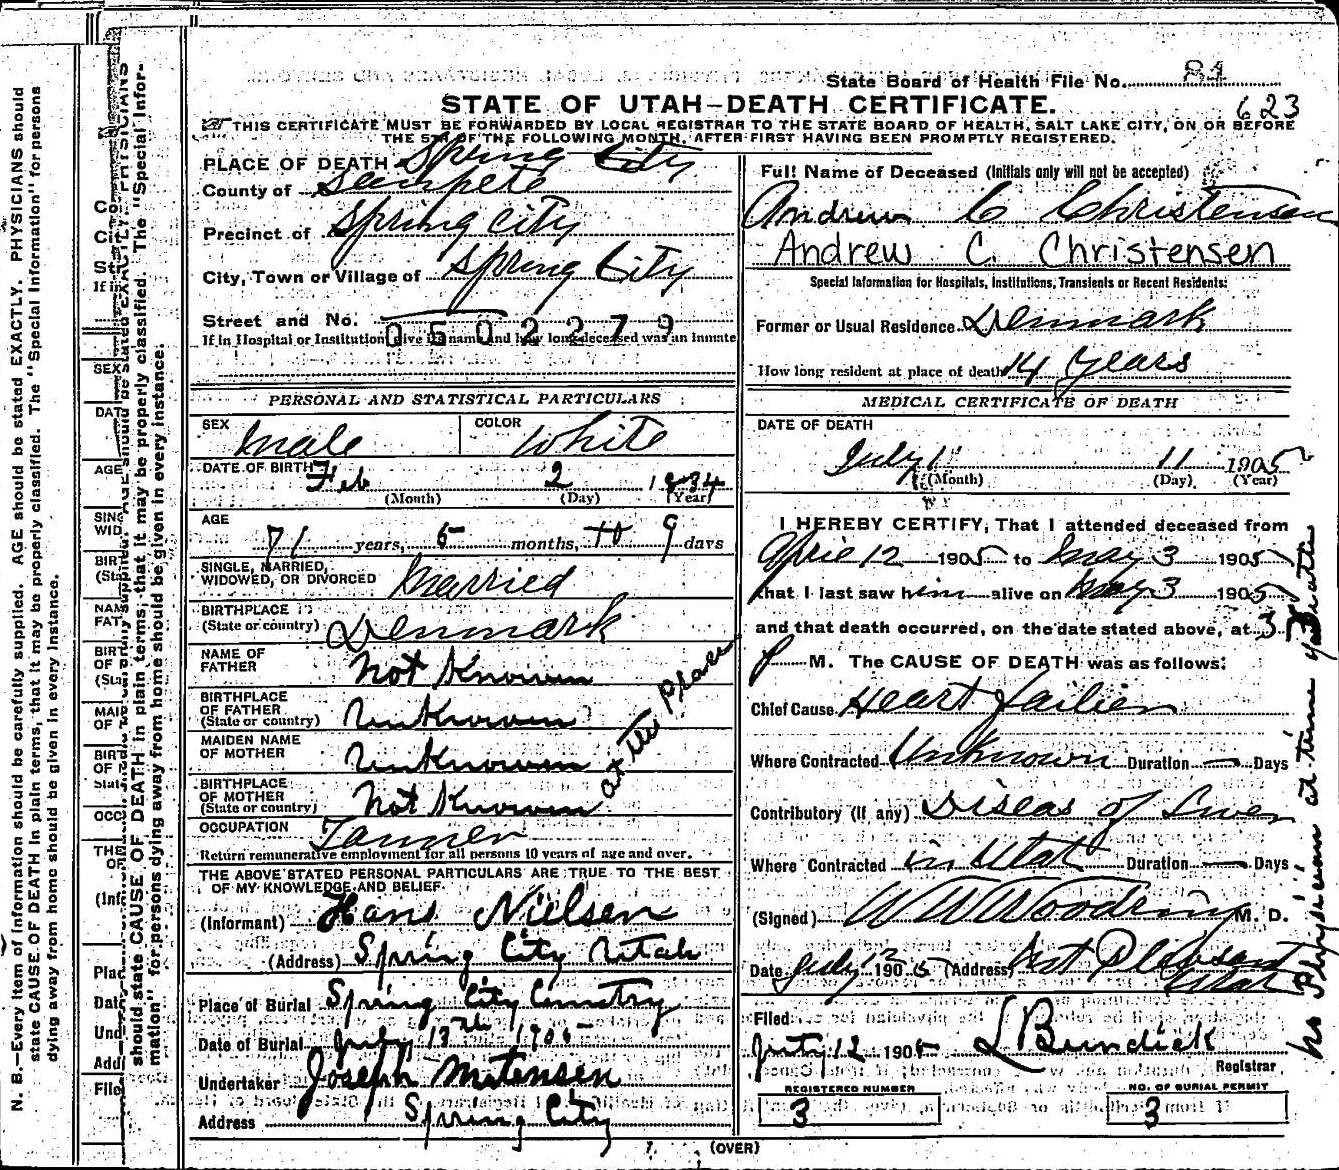 State Board of Health File No. 84
STATE OF UTAH—DEATH CERTIFICATE.
623
THIS CERTIFICATE MUST BE FORWARDED BY LOCAL REGISTRAR TO THE STATE BOARD OF HEALTH, SALT LAKE CITY, ON OR BEFORE
THE 5TH OF THE FOLLOWING MONTH, AFTER FIRST HAVING BEEN PROMPTLY REGISTERED.
PLACE OF DEATH Spring City
County of Sanpete
Precinct of Spring City
City, Town or Village of Spring City
Street and No.
0502279
If in Hospital or Institution give its name and how long deceased was an inmate
PERSONAL AND STATISTICAL PARTICULARS
SEX Male COLOR White
DATE OF BIRTH Feb 2 1834
(Month) (Day) (Year)
AGE 71 years, 5 months, 9 days
SINGLE, MARRIED,
WIDOWED, OR DIVORCED Married
BIRTHPLACE
(State or country) Denmark
NAME OF
FATHER Not Known
BIRTHPLACE
OF FATHER
(State or country) Unknown
MAIDEN NAME
OF MOTHER Unknown
BIRTHPLACE
OF MOTHER
(State or country) Not Known
at this Place
OCCUPATION Tanner
Return remunerative employment for all persons 10 years of age and over.
THE ABOVE STATED PERSONAL PARTICULARS ARE TRUE TO THE BEST
OF MY KNOWLEDGE AND BELIEF
(Informant) Hans Nielsen
(Address) Spring City Utah
Place of Burial Spring City Cemetry
Date of Burial July 13th 1905
Undertaker Joseph Mortensen
Address Spring City
Full Name of Deceased (Initials only will not be accepted)
Andrew C Christensen
Andrew C. Christensen
Special Information for Hospitals, Institutions, Transients or Recent Residents:
Former or Usual Residence Denmark
How long resident at place of death 14 years
MEDICAL CERTIFICATE OF DEATH
DATE OF DEATH
July 11 1905
(Month) (Day) (Year)
I HEREBY CERTIFY, That I attended deceased from
April 12 1905 to May 3 1905
that I last saw him alive on May 3 1905
and that death occurred, on the date stated above, at 3
P M. The CAUSE OF DEATH was as follows:
Chief Cause Heart Failier
Where Contracted Unknown Duration — Days
Contributory (if any) Diseas of Liver
Where Contracted in Utah Duration — Days
(Signed) W W Woodring M. D.
Date July 12 1905 (Address) Mt Pleasant
Utah
Filed
July 12 1905 L Bundick
Registrar
REGISTERED NUMBER
3
NO. OF BURIAL PERMIT
3
(OVER)
No Physician at time of death
N. B.—Every item of information should be carefully supplied. AGE should be stated EXACTLY. PHYSICIANS should
state CAUSE OF DEATH in plain terms, that it may be properly classified. The "Special Information" for persons
dying away from home should be given in every instance.
should state CAUSE OF DEATH in plain terms, that it may be properly classified. The "Special Infor-
mation" for persons dying away from home should be given in every instance.